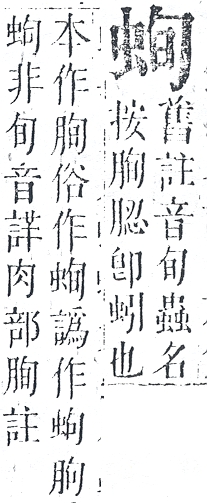 舊註音旬蟲名
按朐䏰卽蚓也
本作朐俗作譌作蚼朐
蚼非旬音詳肉部朐註